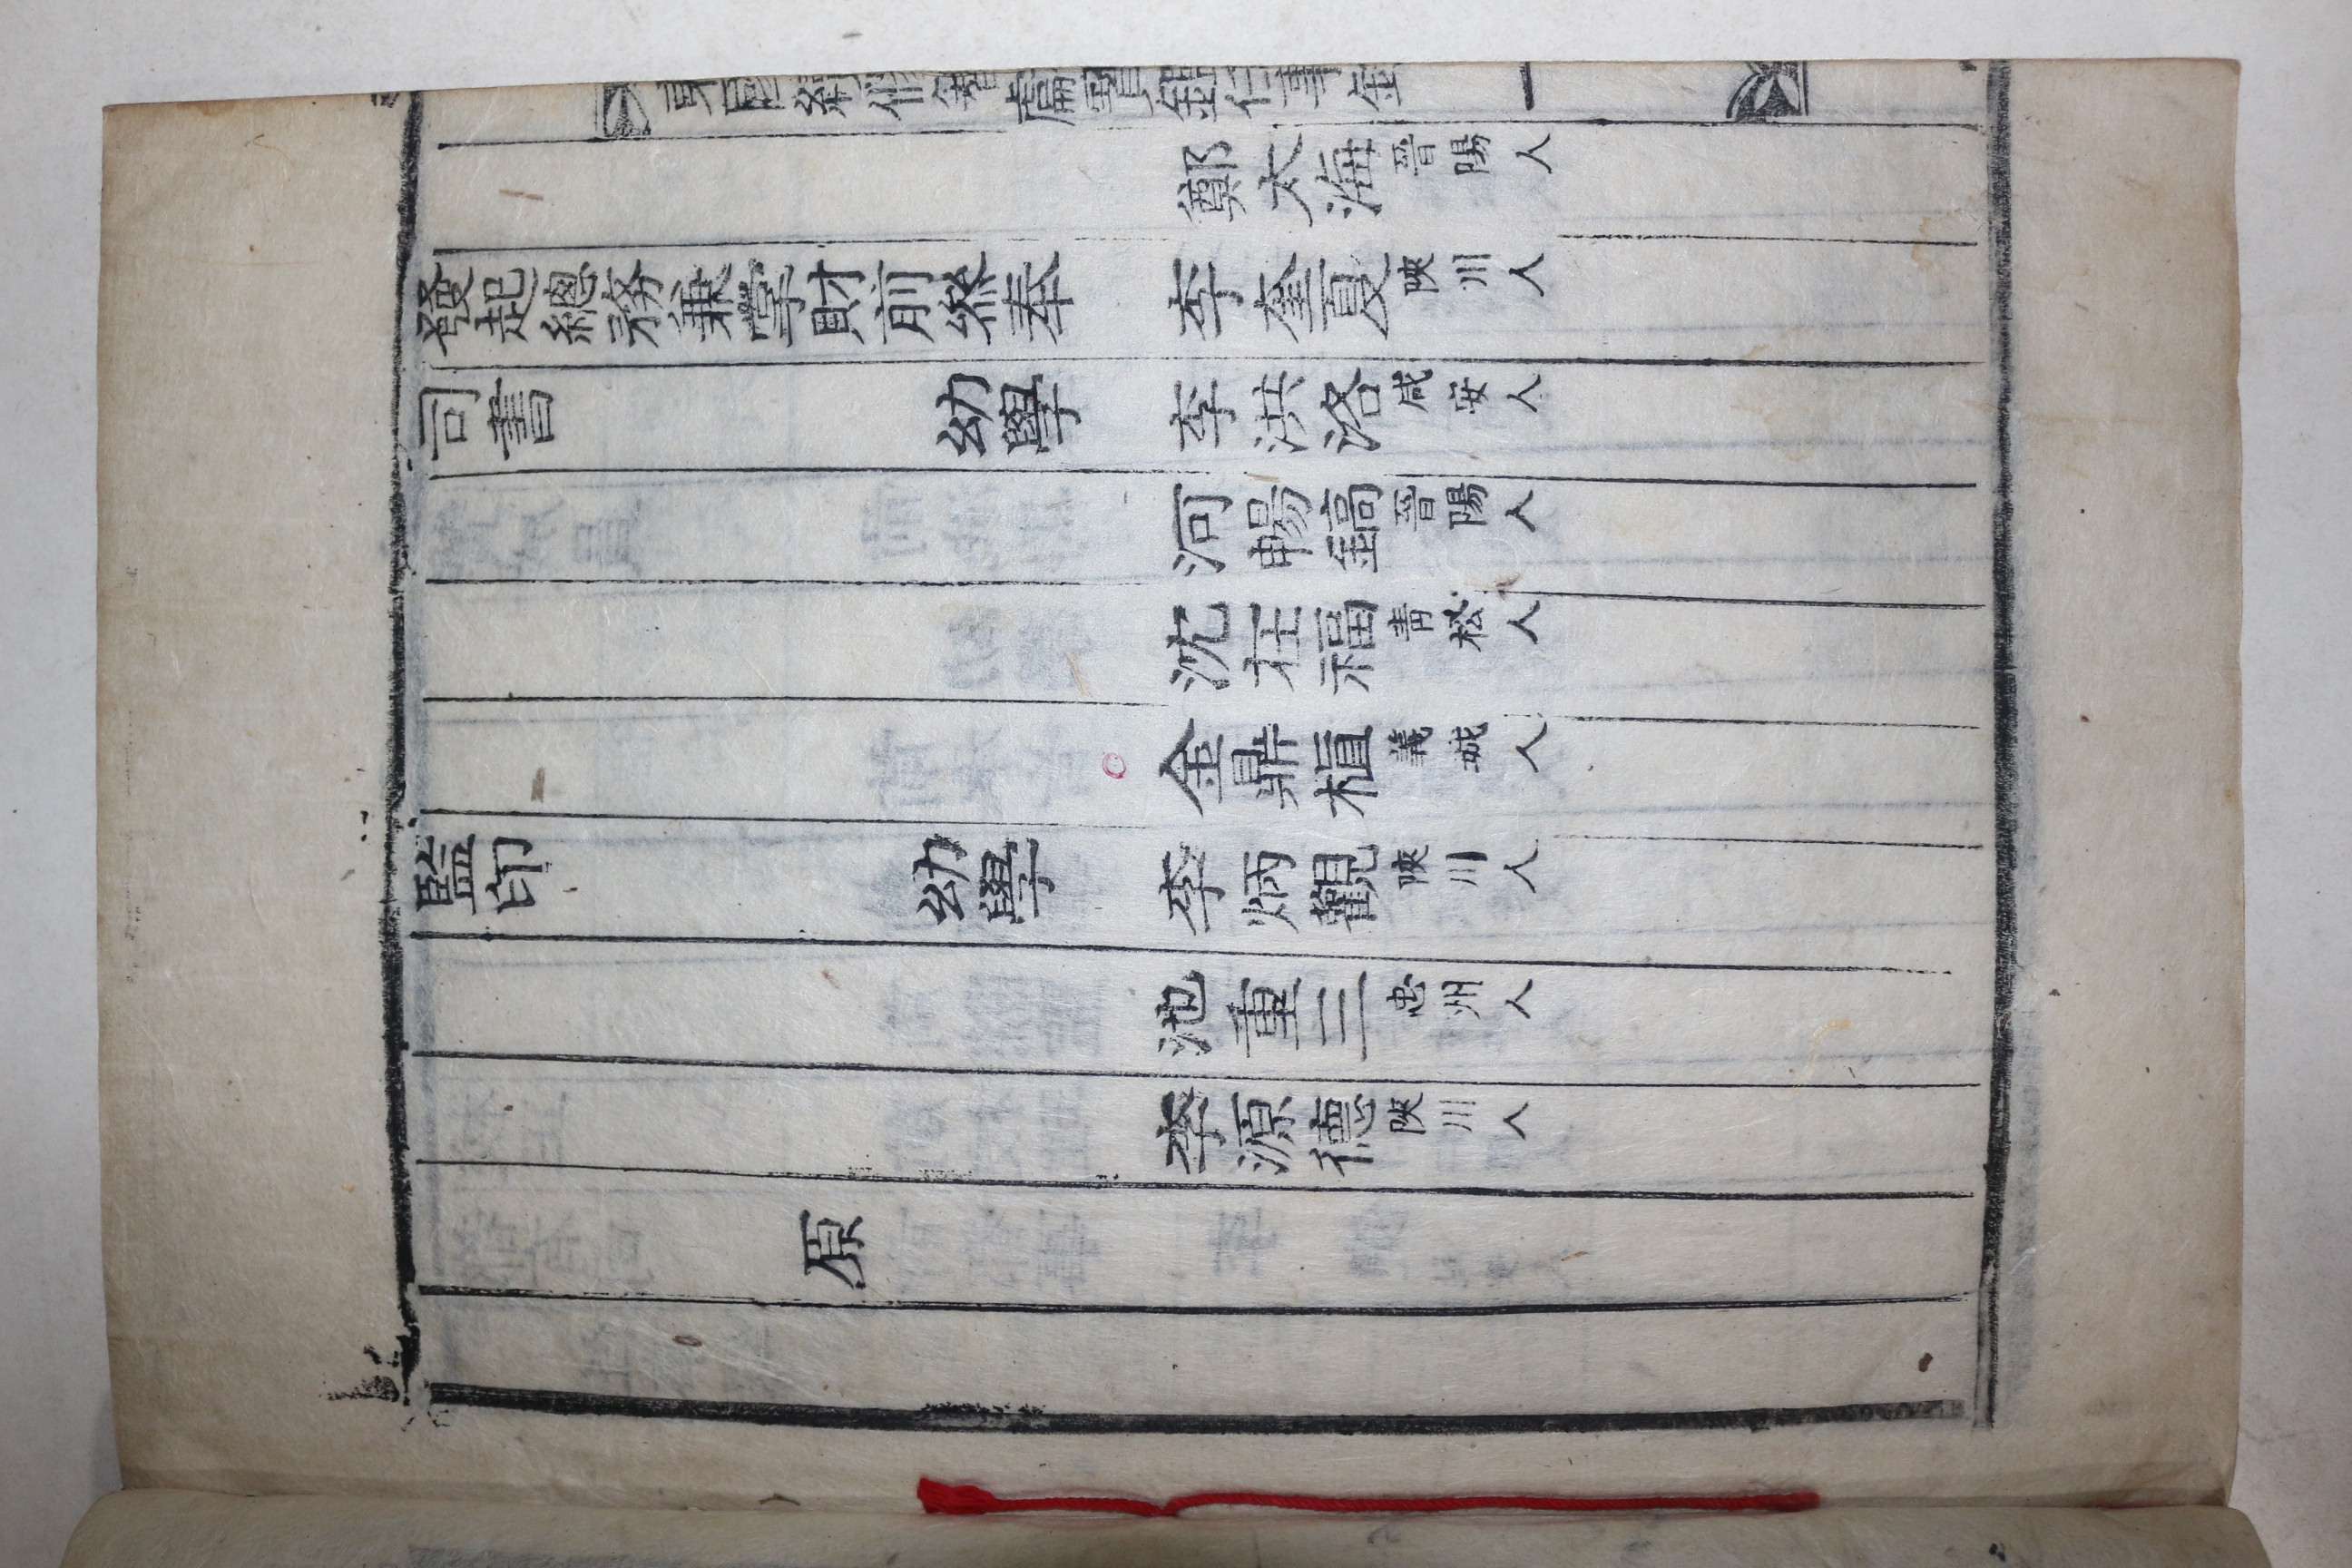 鄭太海 晉陽人
發起總務兼掌財前叅奉 李奎夏 陜川人
司書 幼學 李洪洛 咸安人
河暢鎬 晉陽人
沈在福 靑松人
金鼎植 義城人
監印 幼學 李炳觀 陜川人
池重三 忠州人
李源德 陜川人
原